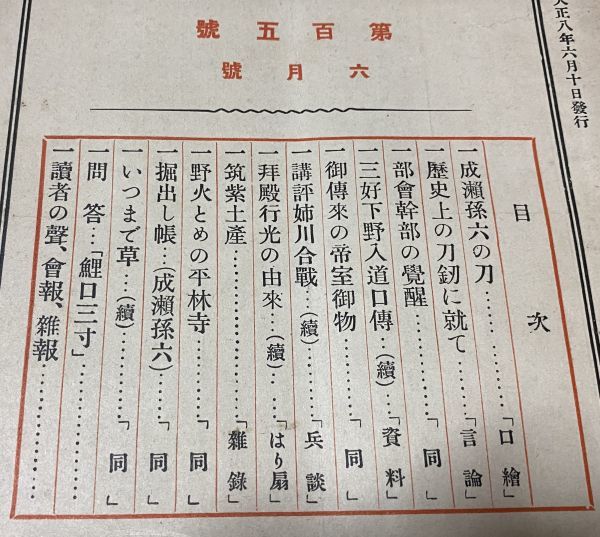 大正八年六月十日發行
第百五號
六月號
目次
一成瀨孫六の刀………「口繪」
一歷史上の刀釼に就て……「言論」
一部會幹部の覺醒………「同」
一三好下野入道口傳…(續)…「資料」
一御傳來の帝室御物………「同」
一講評姉川合戰…(續)……「兵談」
一拜殿行光の由來…(續)…「はり扇」
一筑紫土產………………「雜錄」
一野火とめの平林寺………「同」
一掘出し帳…(成瀨孫六)…「同」
一いつまで草…(續)………「同」
一問答…「鯉口三寸」…………
一讀者の聲、會報、雜報…………